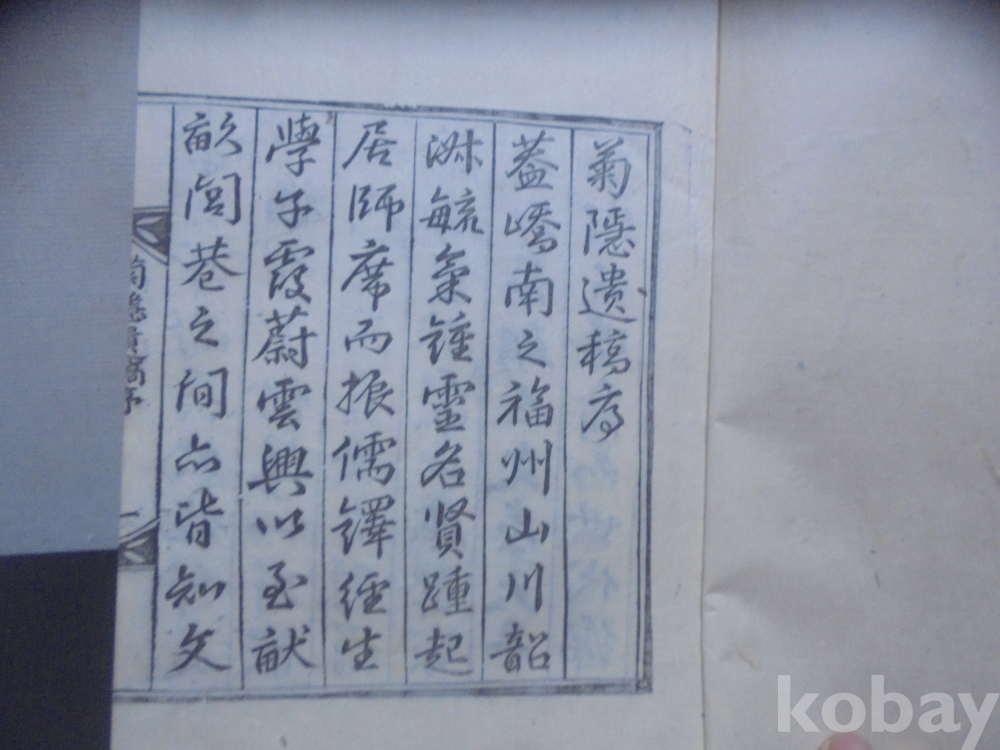 菊隱遺稿序
蓋嶠南之福州山川韶
淋毓氣鍾靈名賢踵起
居師席而振儒鐸經生
學子霞蔚雲興以至畎
畝閭巷之間亦皆知文
菊隱遺稿序
一
kobay